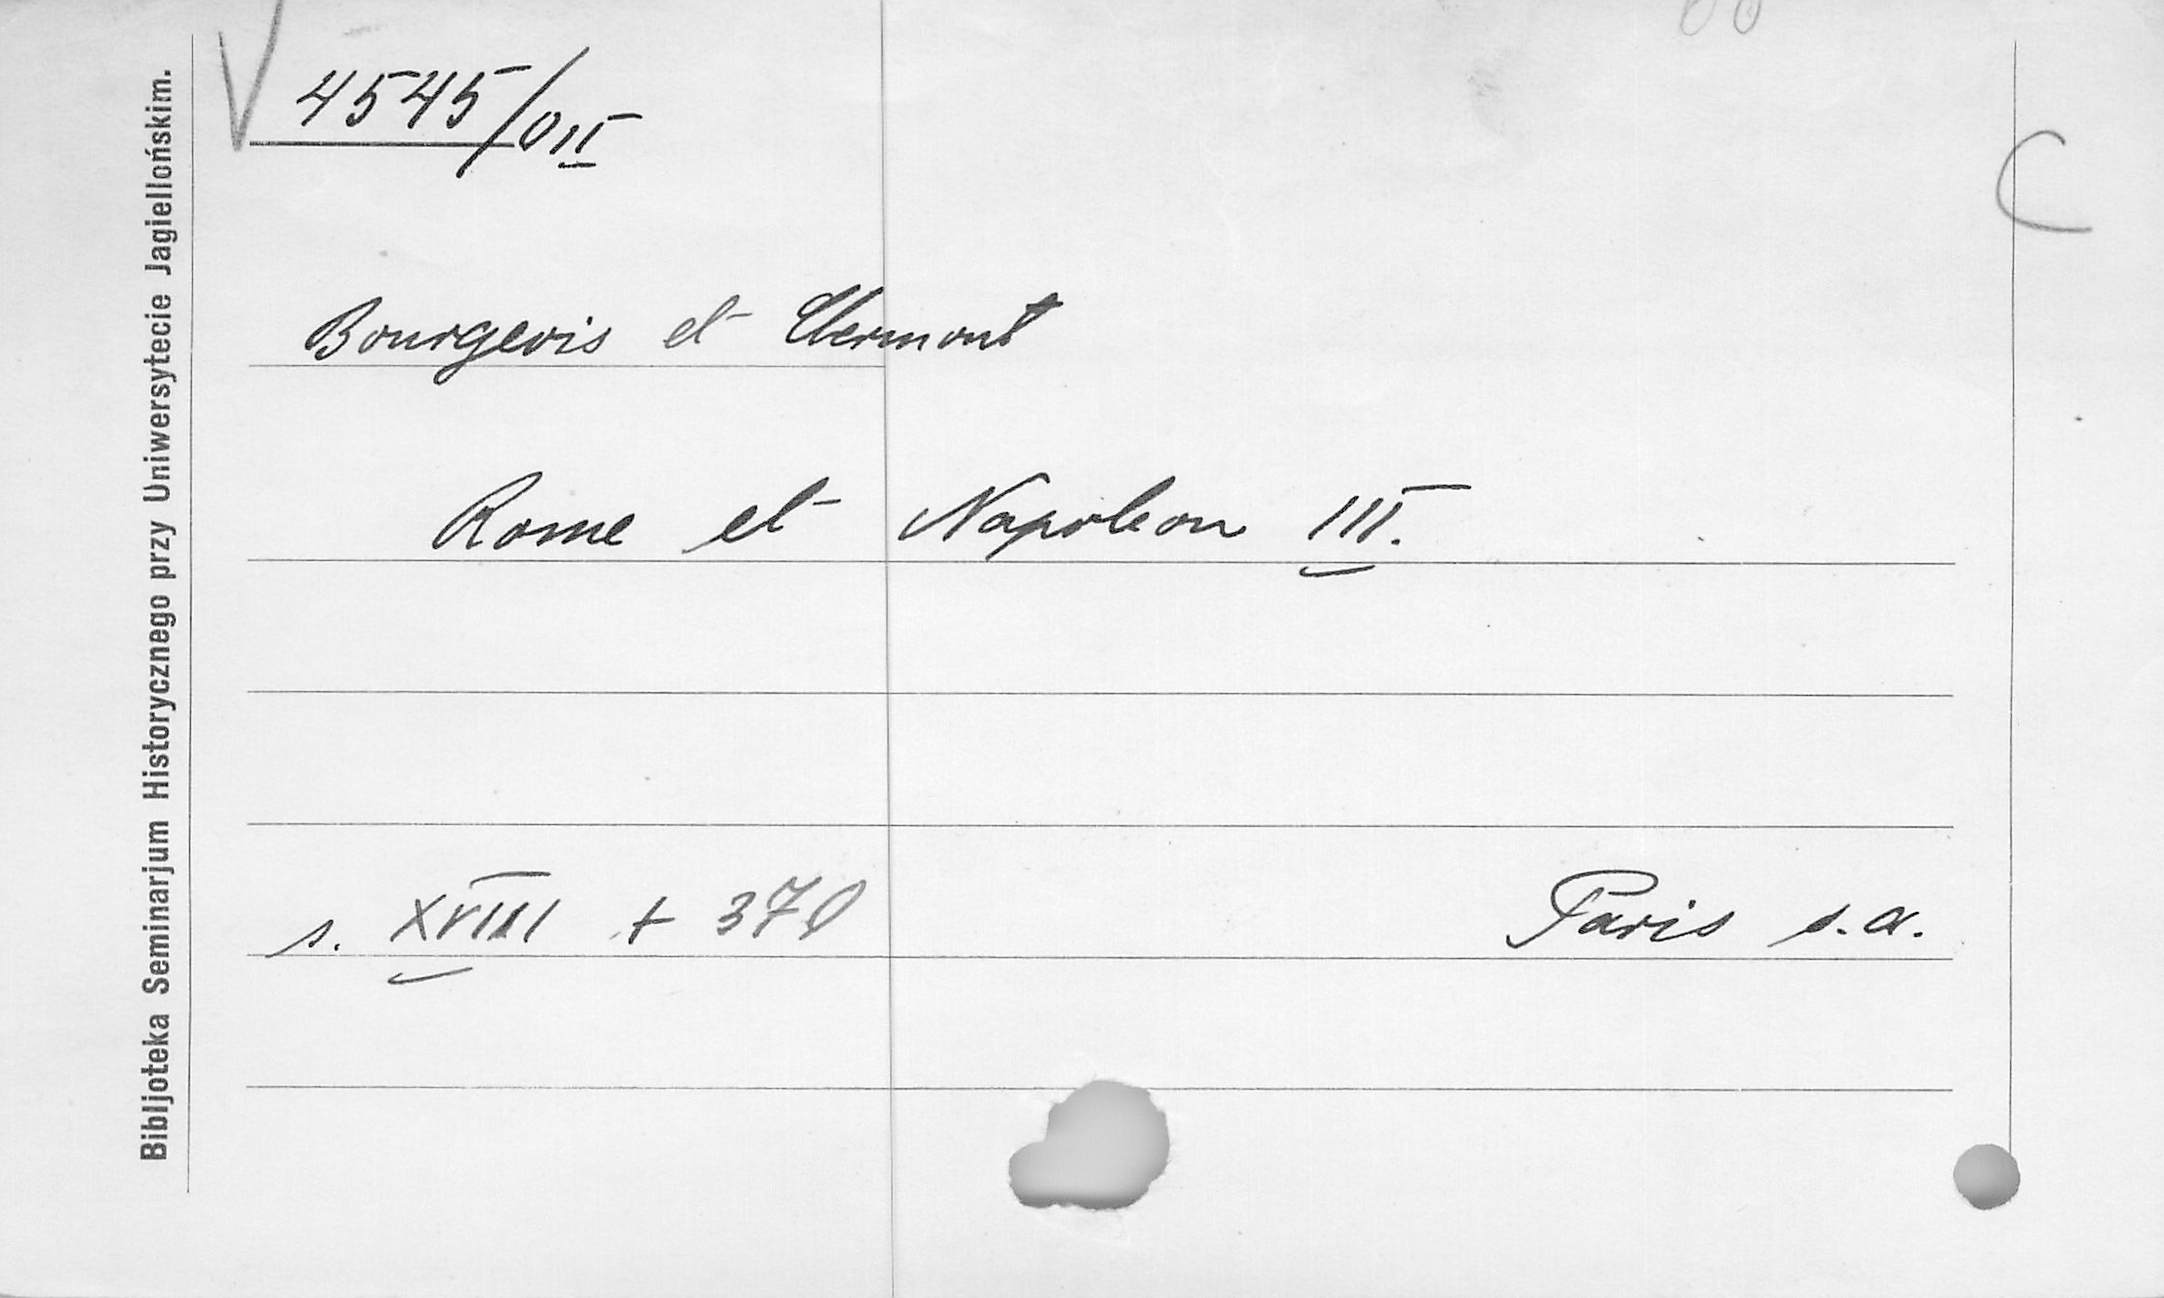 4545/VII
C
Bourgeois et Clermont
Rome et Napoleon III.
s. XVIII + 370 Paris s.a.
Bibljoteka Seminarjum Historycznego przy Uniwersytecie Jagiellońskim.